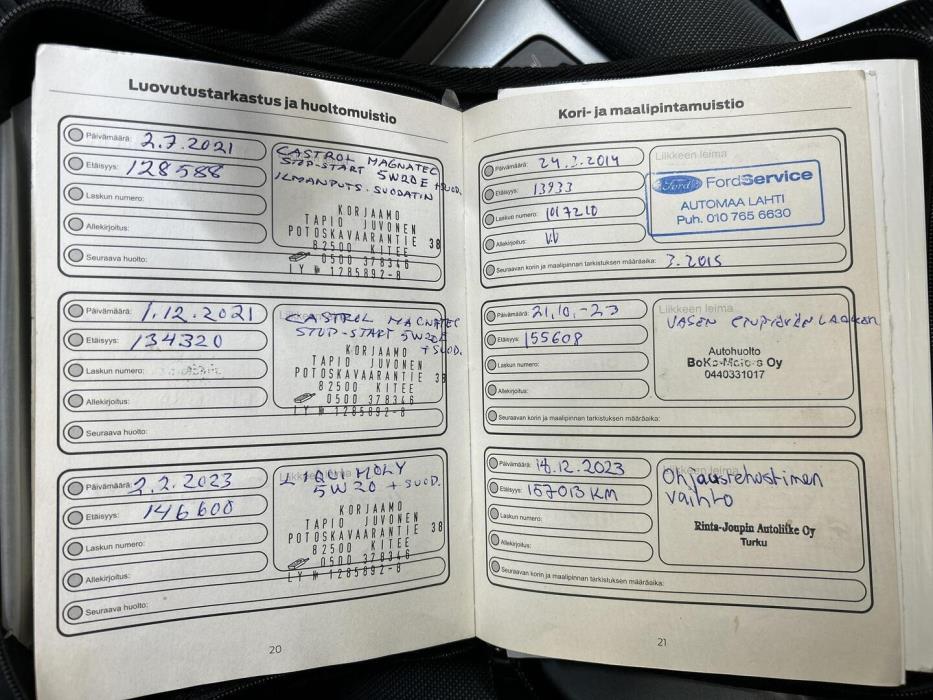 Luovutustarkastus ja huoltomuistio
Päivämäärä: 2.7.2021
Etäisyys: 128588
Laskun numero:
Allekirjoitus:
Seuraava huolto:
CASTROL MAGNATEC
STOP-START 5W20E + SUOD.
ILMANPUTS. SUODATIN
KORJAAMO
TAPIO JUVONEN
POTOSKAVAARANTIE 38
82500 KITEE
0500 378346
LY № 1285892-8
Päivämäärä: 1.12.2021
Etäisyys: 134320
Laskun numero:
Allekirjoitus:
Seuraava huolto:
CASTROL MAGNATEC
STOP-START 5W20E
+ SUOD.
KORJAAMO
TAPIO JUVONEN
POTOSKAVAARANTIE 38
82500 KITEE
0500 378346
LY № 1285892-8
Päivämäärä: 2.2.2023
Etäisyys: 146600
Laskun numero:
Allekirjoitus:
Seuraava huolto:
LIQUI MOLY
5W20 + SUOD.
KORJAAMO
TAPIO JUVONEN
POTOSKAVAARANTIE 38
82500 KITEE
0500 378346
LY № 1285892-8
20
Kori- ja maalipintamuistio
Päivämäärä: 24.3.2014
Etäisyys: 13933
Laskun numero: 1017210
Allekirjoitus:
Seuraavan korin ja maalipinnan tarkistuksen määräaika: 3.2015
Liikkeen leima
Ford FordService
AUTOMAA LAHTI
Puh. 010 765 6630
Päivämäärä: 21.10.-23
Etäisyys: 155608
Laskun numero:
Allekirjoitus:
Seuraavan korin ja maalipinnan tarkistuksen määräaika:
Liikkeen leima
VASEN
Autohuolto
BoKo-Motors Oy
0440331017
Päivämäärä: 18.12.2023
Etäisyys: 157013 KM
Laskun numero:
Allekirjoitus:
Seuraavan korin ja maalipinnan tarkistuksen määräaika:
Liikkeen leima
Ohjaustehostimen
vaihto
Rinta-Joupin Autoliike Oy
Turku
21